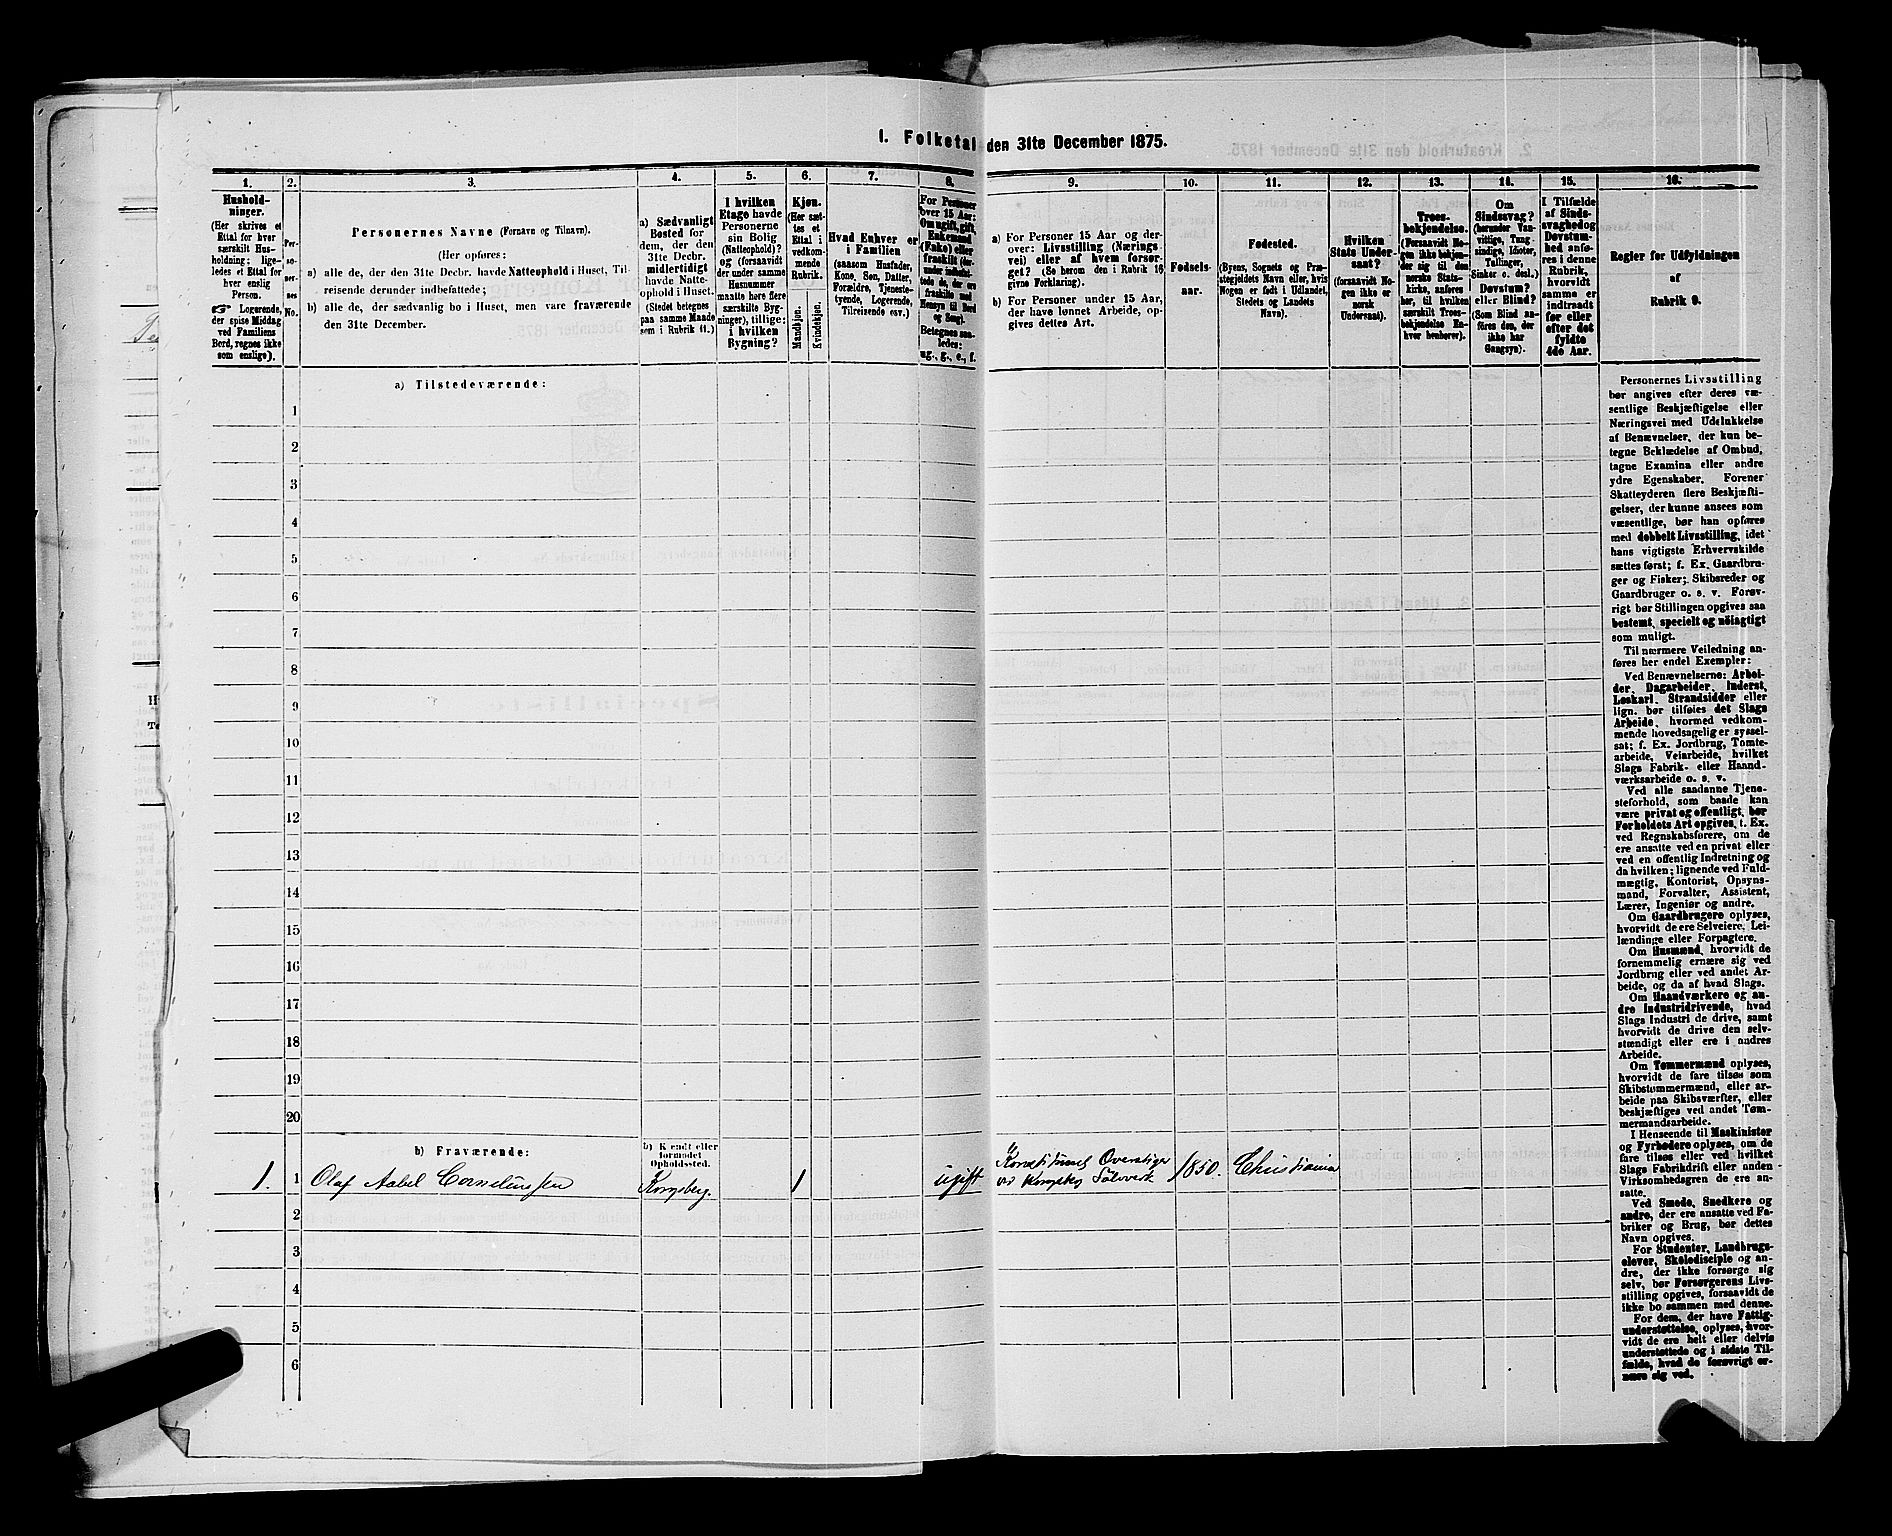 1. Folketal den 31te December 1875.
1.
2.
3.
4.
5.
6.
7.
8.
9.
10.
11.
12.
13.
14.
15.
16.
Hushold-
ninger.
(Her skrives et
Ettal for hver
særskilt Hus-
holdning; lige-
ledes et Ettal for
hver enslig
Person.
Logerende,
der spise Middag
ved Familiens
Bord, regnes ikke
som enslige).
Per-
so-
ner-
nes
No.
Personernes Navne (Fornavn og Tilnavn).
(Her opføres:
a) alle de, der den 31te Decbr. havde Natteophold i Huset, Til-
reisende derunder indbefattede;
b) alle de, der sædvanlig bo i Huset, men vare fraværende
den 31te December.
a) Sædvanligt
Bosted for
dem, der den
31te Decbr.
midlertidigt
havde Natte-
ophold i Huset.
(Stedet betegnes
paa samme Maade
som i Rubrik 11.)
I hvilken
Etage havde
Personerne
sin Bolig
(Natteophold)?
og (forsaavidt
der under samme
Husnummer
maatte høre flere
særskilte Byg-
ninger), tillige:
i hvilken
Bygning?
Kjøn.
(Her sæt-
tes et
Ettal i
vedkom-
mende
Rubrik.
Mandkjøn.
Kvindekjøn.
Hvad Enhver er
i Familien
(saasom Husfader,
Kone, Søn, Datter,
Forældre, Tjeneste-
tyende, Logerende,
Tilreisende osv.)
For Personer
over 15 Aar:
Om ugift, gift,
Enkemand
(Enke) eller
fraskilt (der-
under indbefat-
tede de, der ere
fraskilte med
Hensyn til Bord
og Seng).
Betegnes saa-
ledes:
ug., g., e., f.
a) For Personer 15 Aar og der-
over: Livsstilling (Nærings
vei) eller af hvem forsør-
get? (Se herom den i Rubrik 16
givne Forklaring).
b) For Personer under 15 Aar,
der have lønnet Arbeide, op-
gives dettes Art.
Fødsels-
aar.
Fødested.
(Byens, Sognets og Præ-
stegjeldets Navn eller, hvis
Nogen er født i Udlandet,
Stedets og Landets
Navn).
Hvilken
Stats Under-
saat?
(forsaavidt No-
gen ikke er
norsk
Undersaat).
Troes-
bekjendelse.
(Forsaavidt No-
gen ikke bekjen-
der sig til den
norske Stats-
kirke, anføres
her, til hvilken
særskilt Troes-
bekjendelse En-
hver henhører).
Om
Sindssvag?
(herunder Van-
vittige, Tung-
sindige, Idioter,
Tullinger,
Sinker o. desl.)
Døvstum?
eller Blind?
(Som Blind an-
føres den, der
ikke har
Gangsyn).
I Tilfælde
af Sinds-
svaghed og
Døvstum-
hed anfø-
res i denne
Rubrik,
hvorvidt
samme er
indtraadt
før eller
efter det
fyldte
4de Aar.
Regler for Udfyldningen
af
Rubrik 9.
a) Tilstedeværende:
1
2
3
4
5
6
7
8
9
10
11
12
13
14
15
16
17
18
19
20
b) Fraværende:
b) Kendt eller
formodet
Opholdssted.
1. 1 Olaf Aabel Corneliussen Kongsberg. 1 ugift Konstitueret Overstiger 1850. Christiania
ved Kongsberg Sølvverk
2
3
4
5
6
Personernes Livsstilling
bør angives efter deres væ-
sentlige Beskjæftigelse eller
Næringsvei med Udelukkelse
af Benævnelser, der kun be-
tegne Beklædelse af Ombud,
tagne Examina eller andre
ydre Egenskaber. Forener
Skatteyderen flere Beskjæfti-
gelser, der kunne ansees som
væsentlige, bør han opføres
med dobbelt Livsstilling, idet
hans vigtigste Erhvervskilde
sættes først; f. Ex. Gaardbru-
ger og Fisker; Skibsreder og
Gaardbruger o. s. v. Forøv-
rigt bør Stillingen opgives saa
bestemt, specielt og nøiagtigt
som muligt.
Til nærmere Veiledning an-
føres her endel Exempler:
Ved Benævnelserne: Arbei-
der, Dagarbeider, Inderst,
Løskarl, Strandsidder eller
lign. bør tilføies det Slags
Arbeide, hvormed vedkom-
mende hovedsagelig er syssel-
sat; f. Ex. Jordbrug, Tomte-
arbeide, Veiarbeide, hvilket
Slags Fabrik- eller Haand-
værksarbeide o. s. v.
Ved alle saadanne Tjene-
steforhold, som baade kan
være privat og offentligt, bør
Forholdets Art opgives, t. Ex.
ved Regnskabsførere, om de
ere ansatte ved en privat eller
ved en offentlig Indretning og
da hvilken; lignende ved Fuld-
mægtig, Kontorist, Opsyns-
mand, Forvalter, Assistent,
Lærer, Ingeniør og andre.
Om Gaardbrugere oplyses,
hvorvidt de ere Selveiere, Lei-
lændinge eller Forpagtere.
Om Husmænd, hvorvidt de
fornemmelig ernære sig ved
Jordbrug eller ved andet Ar-
beide, og da af hvad Slags.
Om Haandværkere og an-
dre Industridrivende, hvad
Slags Industri de drive, samt
hvorvidt de drive den selv-
stændigt eller ere i andres
Arbeide.
Om Tømmermænd oplyses,
hvorvidt de fare tilsøs som
Skibstømmermænd, eller ar-
beide paa Skibsværfter, eller
beskjæftiges ved andet Tøm-
mermandsarbeide.
I Henseende til Maskinister
og Fyrbødere oplyses, om de
fare tilsøs eller ved hvilket
Slags Fabrikdrift eller anden
Virksomhedsgren de ere an-
satte.
Ved Smede, Snedkere og
andre, der ere ansatte ved Fa-
briker og Brug, bør dettes
Navn opgives.
For Studenter, Landbrugs-
elever, Skoledisciple og an-
dre, der ikke forsørge sig
selv, bør Forsørgerens Livs-
stilling opgives, forsaavidt de
ikke bo sammen med denne.
For dem, der have Fattig-
understøttelse, oplyses, hvor-
vidt de ere helt eller delvis
understøttede og i sidste Til-
fælde, hvad de forøvrigt er-
nære sig ved.